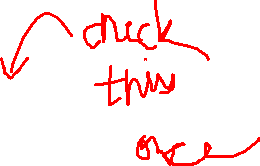 check
this
once